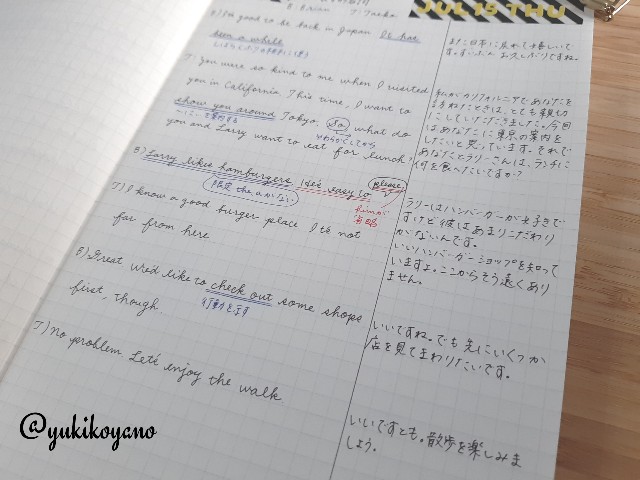 B:Brian T:Tasha
JUL 15 THU
B) I'm good to be back in Japan It has
been a while
また日本に戻れて嬉しいで
す。ずいぶんお久しぶりですね。
T) You were so kind to me when I visited
you in California This time, I want to
show you around Tokyo. So what do
you and Larry want to eat for lunch?
私がカリフォルニアであなたを
訪ねたときは、とても親切
にしていただきました。今回
はあなたに東京の案内を
したいと思っています。それで
あなたとラリーさんは、ランチに
何を食べたいですか?
B) Larry likes hamburgers He's easy to please
限定theがない
himが
省略
ラリーはハンバーガーが大好きで
すけど彼はあまりこだわり
がないんです。
T) I know a good burger place It's not
far from here
いいハンバーガーショップを知って
いますよ。ここからそう遠くあり
ません。
B) Great We'd like to check out some shops
first, though.
行動を示す
いいですね。でも先にいくつか
店を見てまわりたいです。
T) No problem Let's enjoy the walk
いいですとも。散歩を楽しみま
しょう。
@yukikoyano